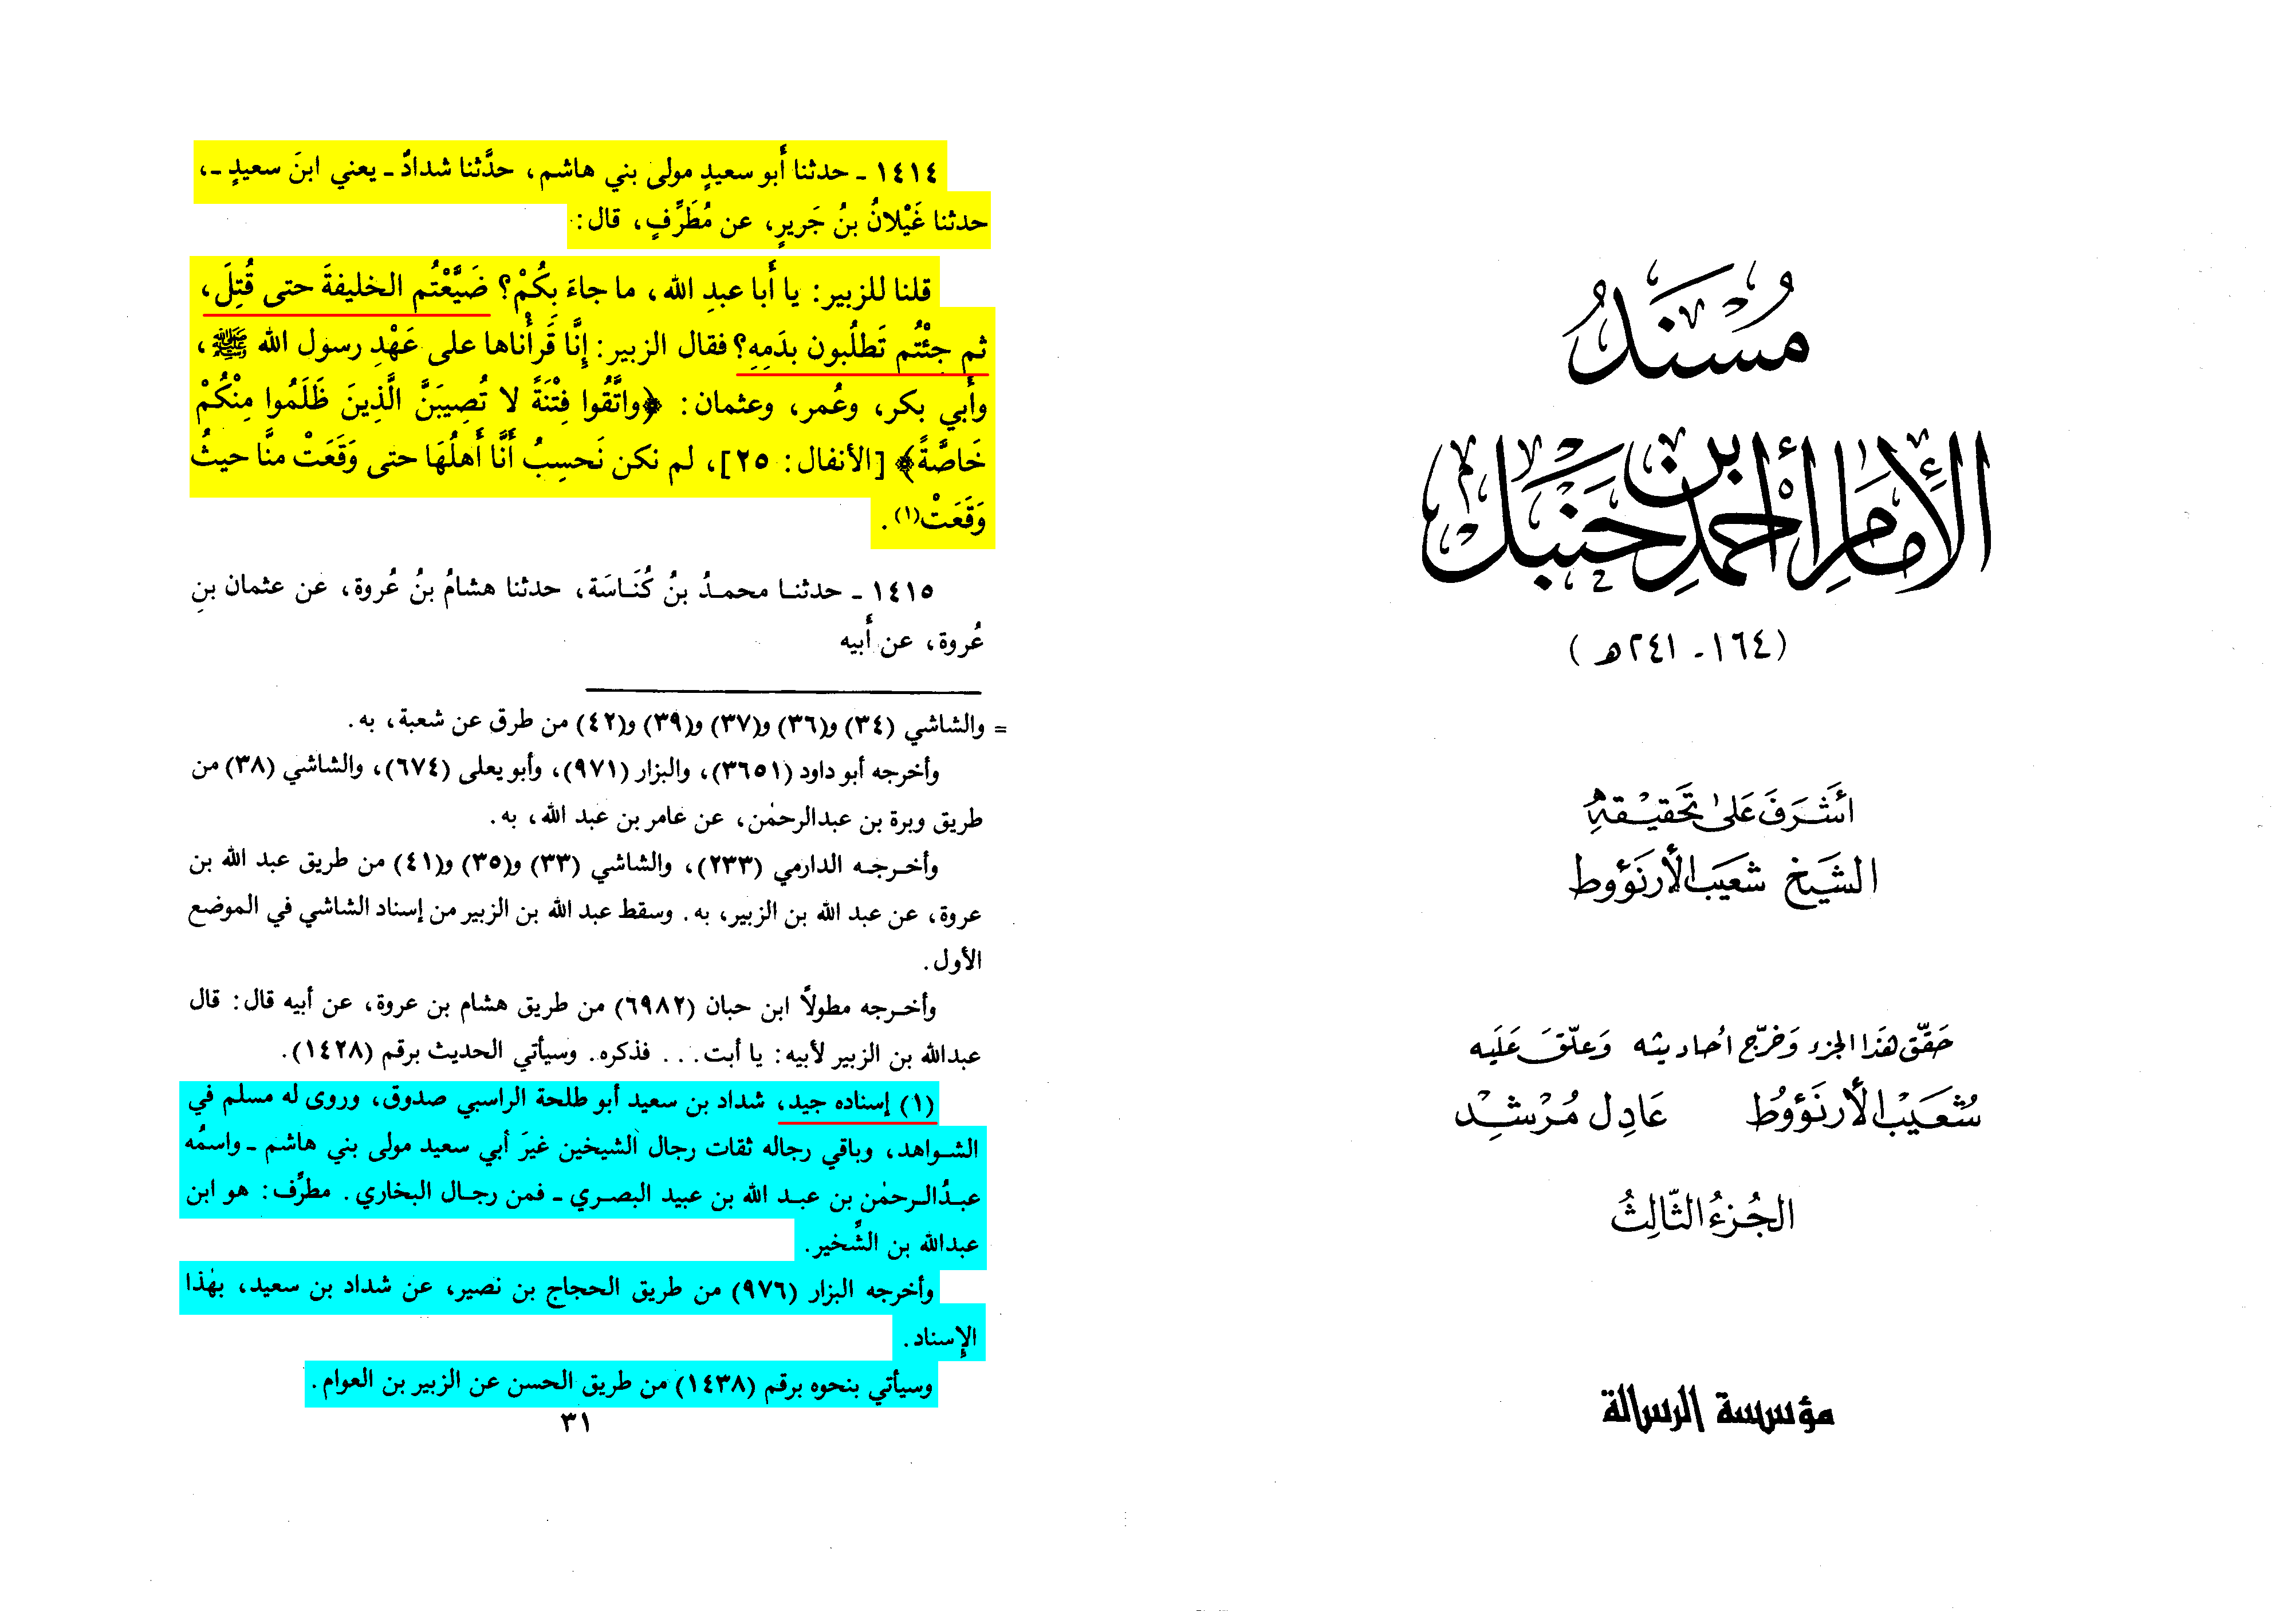 مُسْنَدُ
الإِمَامِ أَحْمَدَ بْنِ حَنْبَل
(١٦٤ - ٢٤١ هـ)
أشَرَفَ عَلى تَحقيْقهِ
الشَيخ شعَيَب الأرنَؤوط
حَقّق هَذا الجزء وَخَرّج أحاديثه وَعلّقَ عَلَيه
شعَيَب الأرنَؤوط عَادِل مُرْشِد
الجُزءُ الثّالِثُ
مؤسسة الرسالة
١٤١٤ ـ حدثنا أَبو سعيدٍ مولى بني هاشم، حدَّثنا شدادٌ ـ يعني ابنَ سعيدٍ ـ،
حدثنا غَيْلانُ بنُ جَريرٍ، عن مُطَرِّفٍ، قال:
قلنا للزبير: يا أَبا عبدِ الله، ما جاءَ بِكُمْ؟ ضَيَّعْتُم الخليفةَ حتى قُتِلَ،
ثم جِئْتُم تَطلُبون بدَمِهِ؟ فقال الزبير: إِنَّا قَرأْناها على عَهْدِ رسول الله ﷺ،
وأَبي بكر، وعُمر، وعثمان: ﴿واتَّقُوا فِتْنَةً لا تُصِيبَنَّ الَّذِينَ ظَلَمُوا مِنْكُمْ
خَاصَّةً﴾ [الأنفال: ٢٥]، لم نكن نَحسِبُ أَنَّا أَهلُهَا حتى وَقَعَتْ منَّا حيثُ
وَقَعَتْ(١).
١٤١٥ ـ حدثنا محمدُ بنُ كُنَاسَة، حدثنا هشامُ بنُ عُروة، عن عثمان بنِ
عُروة، عن أَبيه
= والشاشي (٣٤) و(٣٦) و(٣٧) و(٣٩) و(٤٢) من طرق عن شعبة، به.
وأخرجه أبو داود (٣٦٥١)، والبزار (٩٧١)، وأبو يعلى (٦٧٤)، والشاشي (٣٨) من
طريق وبرة بن عبدالرحمٰن، عن عامر بن عبد الله، به.
وأخرجه الدارمي (٢٣٣)، والشاشي (٣٣) و(٣٥) و(٤١) من طريق عبد الله بن
عروة، عن عبد الله بن الزبير، به. وسقط عبد الله بن الزبير من إسناد الشاشي في الموضع
الأول.
وأخرجه مطولاً ابن حبان (٦٩٨٢) من طريق هشام بن عروة، عن أبيه قال: قال
عبدالله بن الزبير لأبيه: يا أبت... فذكره. وسيأتي الحديث برقم (١٤٢٨).
(١) إسناده جيد، شداد بن سعيد أبو طلحة الراسبي صدوق، وروى له مسلم في
الشواهد، وباقي رجاله ثقات رجال الشيخين غيرَ أبي سعيد مولى بني هاشم ـ واسمُه
عبدُالرحمٰن بن عبد الله بن عبيد البصري ـ فمن رجال البخاري. مطرِّف: هو ابن
عبدالله بن الشِّخير.
وأخرجه البزار (٩٧٦) من طريق الحجاج بن نصير، عن شداد بن سعيد، بهٰذا
الإِسناد.
وسيأتي بنحوه برقم (١٤٣٨) من طريق الحسن عن الزبير بن العوام.
٣١